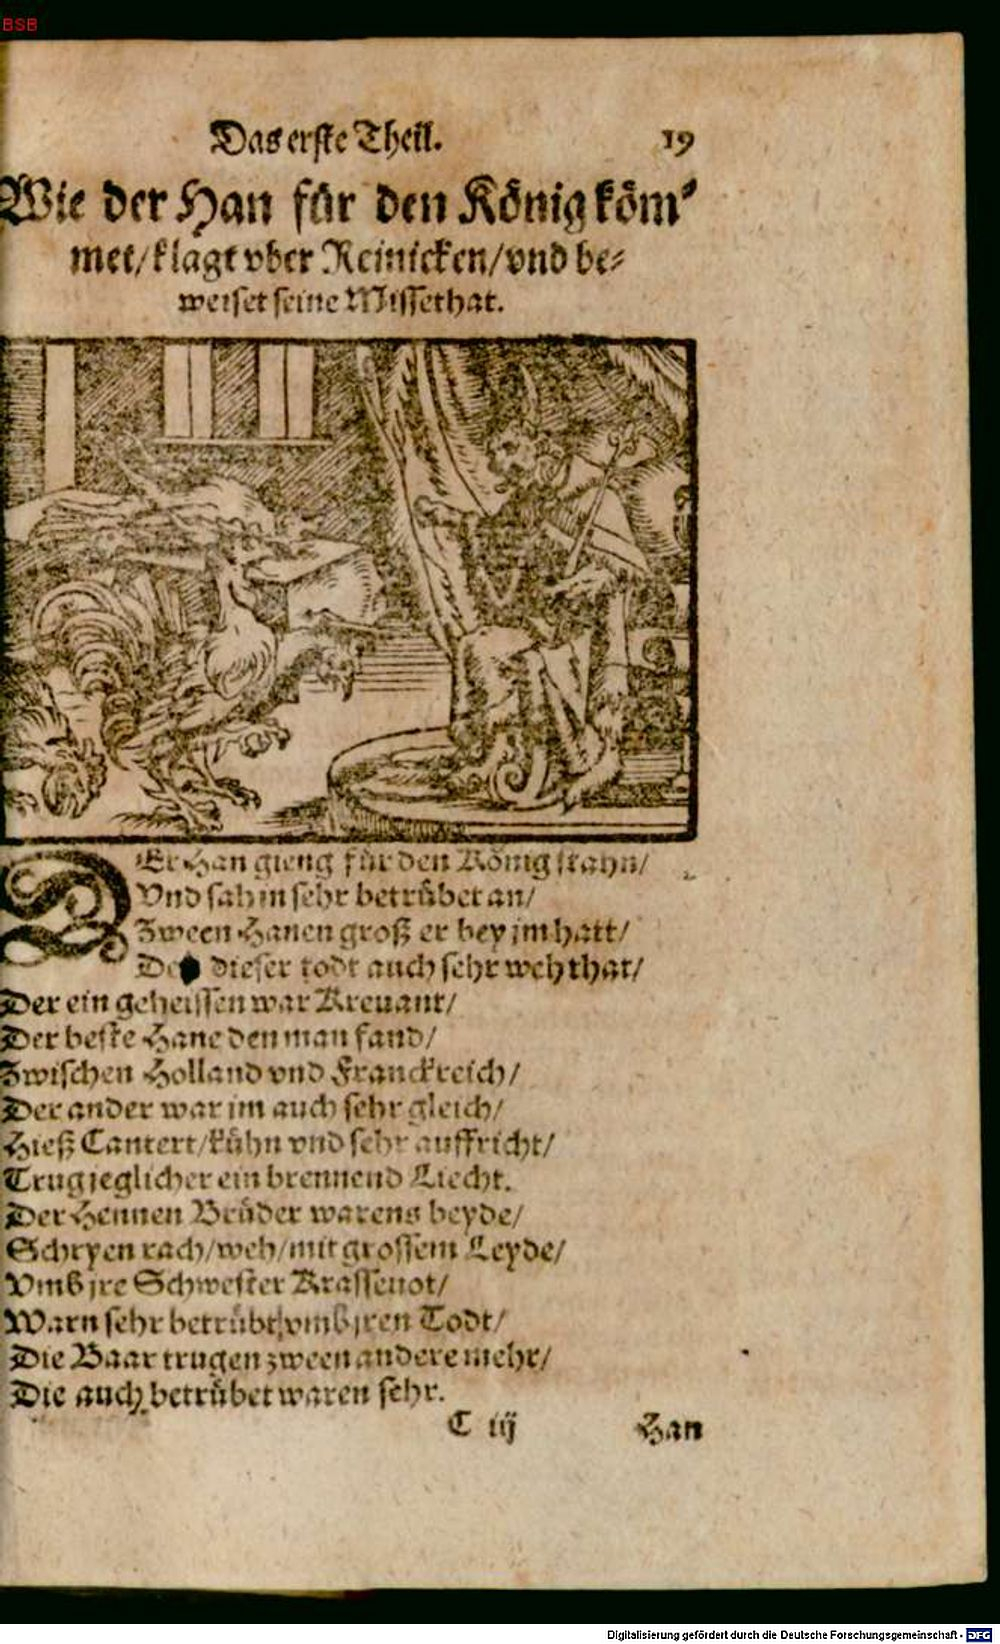 BSB
Das erste Theil. 19
Wie der Han für den König köm-
met/klagt vber Reinicken/vnd be-
weiset seine Missethat.
DEr Han gieng für den König strahn/
Vnd sah in sehr betrübet an/
Zween Hanen groß er bey jm hatt/
Den dieser todt auch sehr weh that/
Der ein geheissen war Kreuant/
Der beste Hane den man fand/
Zwischen Holland vnd Franckreich/
Der ander war im auch sehr gleich/
Hieß Cantert/kühn vnd sehr auffricht/
Trug jeglicher ein brennend Liecht.
Der Hennen Brüder warens beyde/
Schryen rach/weh/mit grossem Leyde/
Vmb jre Schwester Krasseuot/
Warn sehr betrübt/vmb jren Todt/
Die Baar trugen zween andere mehr/
Die auch betrübet waren sehr.
C iij Han
Digitalisierung gefördert durch die Deutsche Forschungsgemeinschaft - DFG